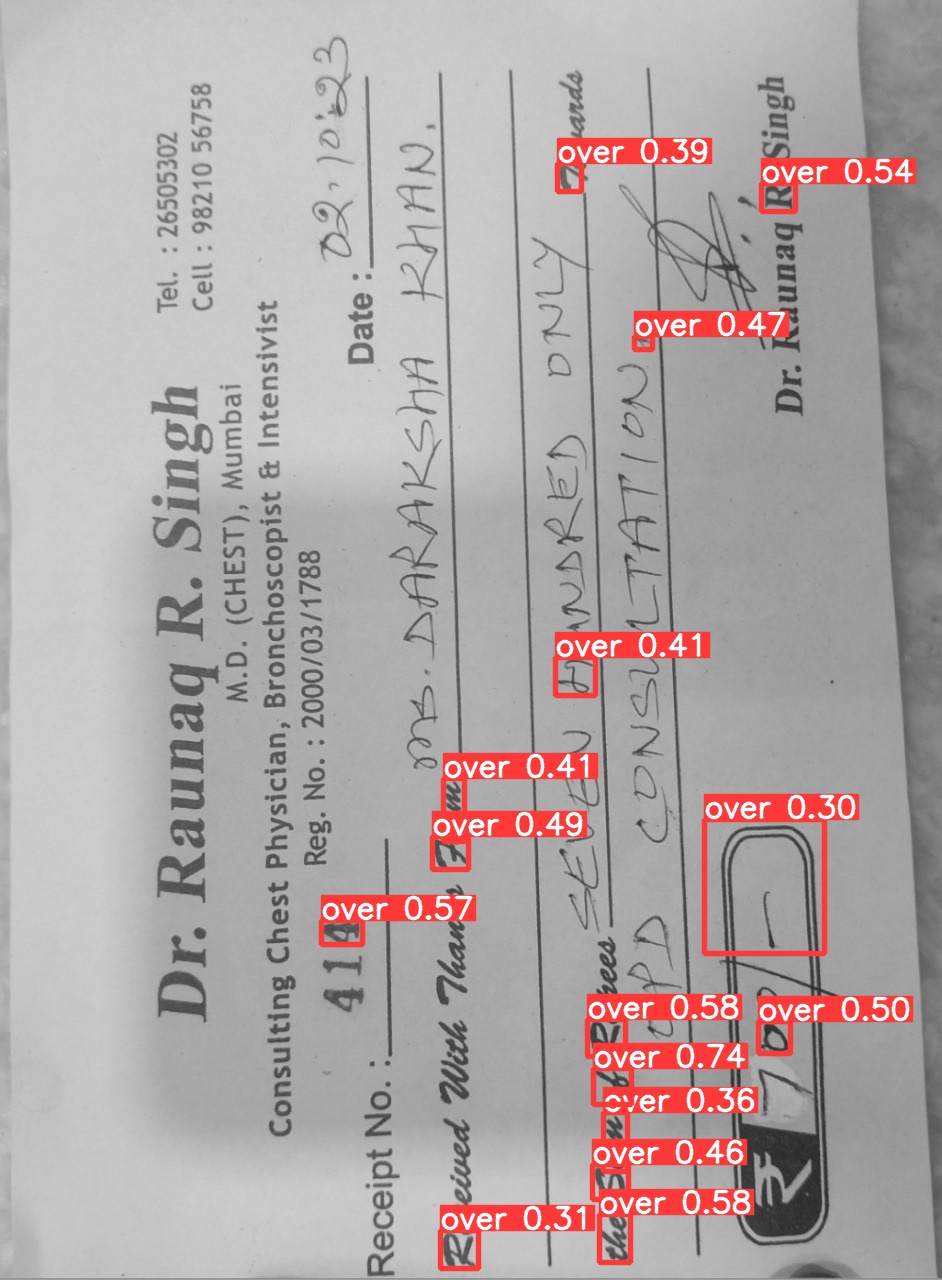 Dr. Raunaq R. Singh
Tel. : 26505302
Cell : 98210 56758
M.D. (CHEST), Mumbai
Consulting Chest Physician, Bronchoscopist & Intensivist
Reg. No. : 2000/03/1788
Receipt No. : 414
Date : 02.10.23
Received With Thanks From Ms. DARAKSHA KHAN.
the Sum of Rupees SEVEN HUNDRED ONLY Towards
OPD CONSULTATION.
₹ 700/-
Dr. Raunaq R Singh
over 0.39
over 0.54
over 0.47
over 0.41
over 0.41
over 0.49
over 0.30
over 0.57
over 0.58
over 0.50
over 0.74
over 0.36
over 0.46
over 0.58
over 0.31